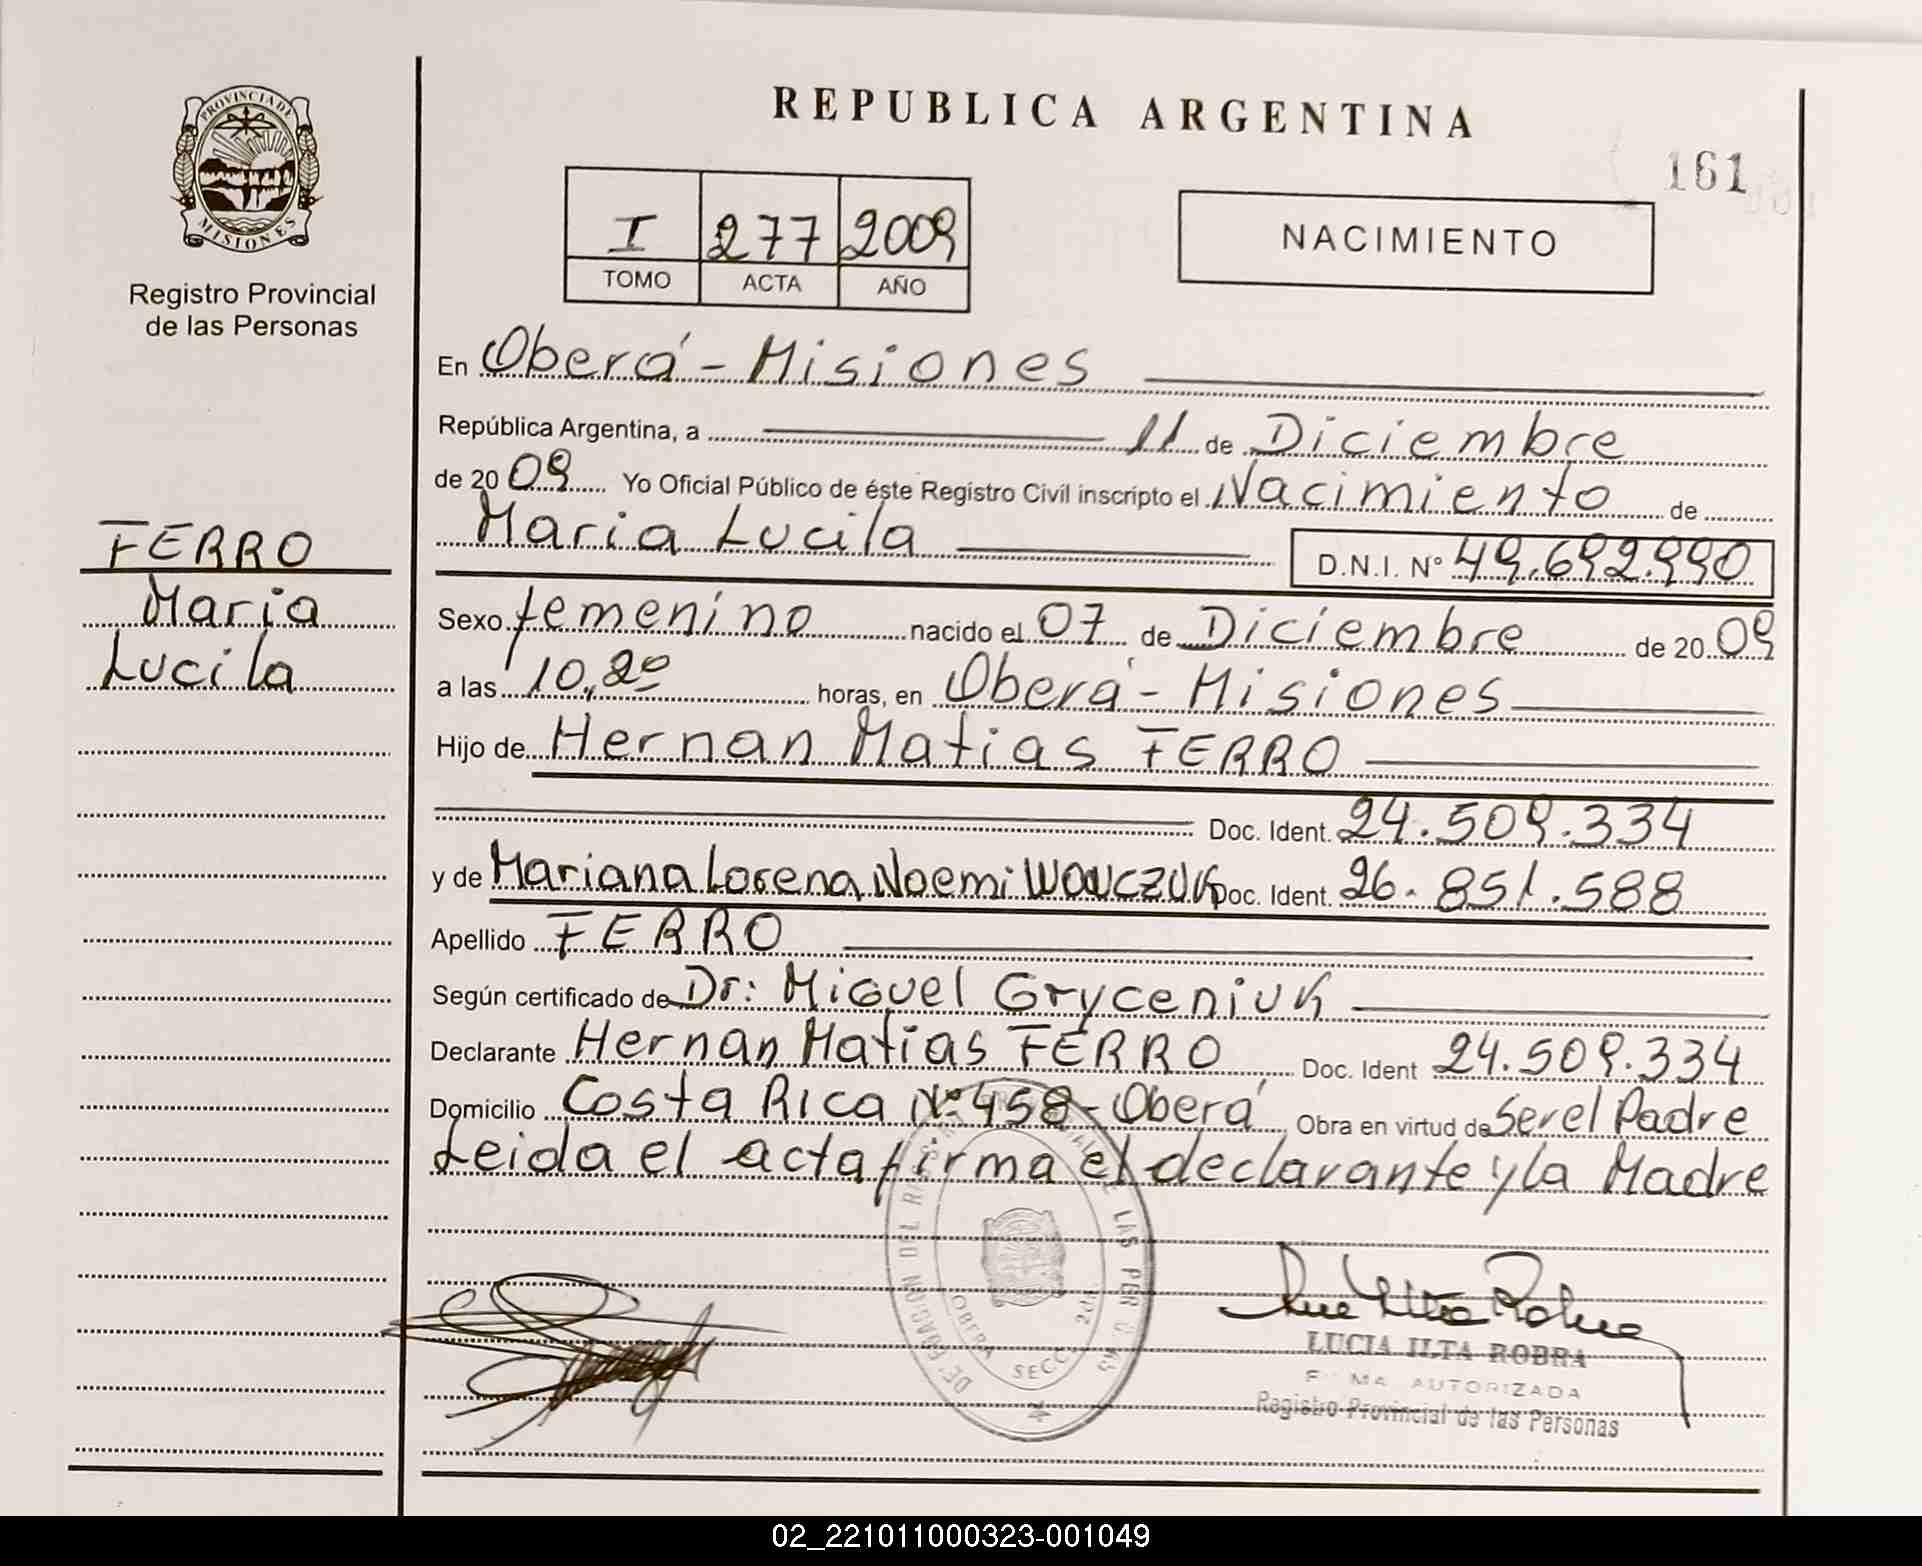 PROVINCIA DE
MISIONES
Registro Provincial
de las Personas
FERRO
Maria
Lucila
REPUBLICA ARGENTINA
161
I 277 2009
TOMO ACTA AÑO
NACIMIENTO
En Oberá - Misiones
República Argentina, a 11 de Diciembre
de 2009 Yo Oficial Público de éste Registro Civil inscripto el Nacimiento de
Maria Lucila D.N.I. Nº 49.692.990
Sexo femenino nacido el 07 de Diciembre de 2009
a las 10,20 horas, en Oberá - Misiones
Hijo de Hernan Matias FERRO
Doc. Ident. 24.509.334
y de Mariana Lorena Noemi WOUCZUK Doc. Ident. 26.851.588
Apellido FERRO
Según certificado de Dr: Miguel Gryceniuk
Declarante Hernan Matias FERRO Doc. Ident 24.509.334
Domicilio Costa Rica Nº 458 - Oberá Obra en virtud de Ser el Padre
Leida el acta firma el declarante y la Madre
LAS PER
OBERA SECC. 2da
LUCIA ILTA ROBRA
FIRMA AUTORIZADA
Registro Provincial de las Personas
02_221011000323-001049